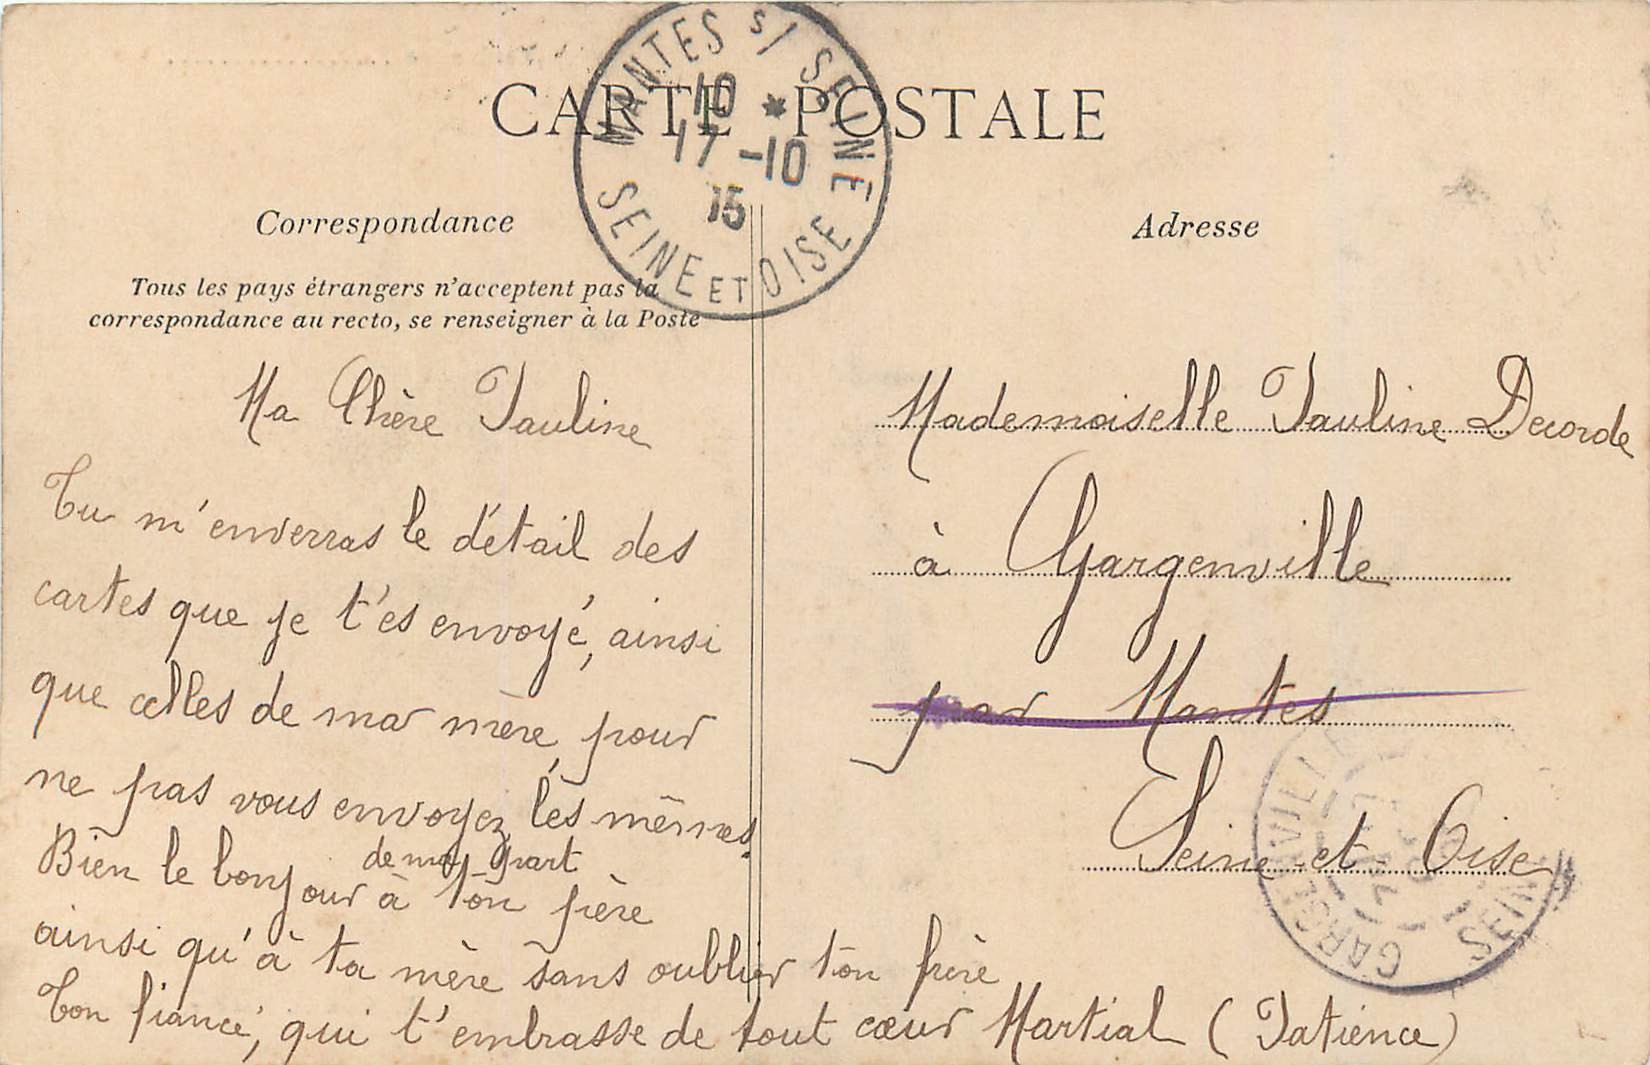 CARTE POSTALE
MANTES S/ SEINE
10 *
17 -10
15
SEINE ET OISE
Correspondance
Tous les pays étrangers n'acceptent pas la
correspondance au recto, se renseigner à la Poste
Ma Chère Pauline
Tu m'enverras le détail des
cartes que je t'es envoyé, ainsi
que celles de ma mère, pour
ne pas vous envoyez les mêmes.
de ma part
Bien le bonjour à ton père
ainsi qu'à ta mère sans oublier ton frère
Ton fiancé, qui t'embrasse de tout cœur Martial (Patience)
Adresse
Mademoiselle Pauline Decorde
à Gargenville
par Mantes
Seine-et-Oise
GARGENVILLE
SEINE